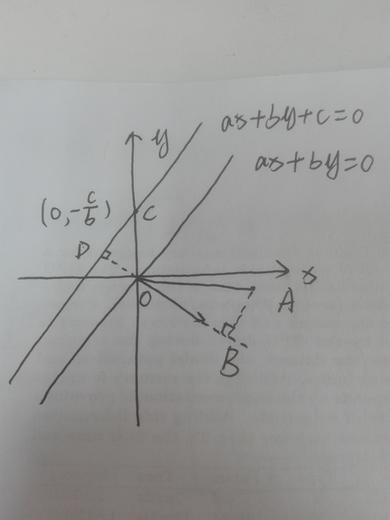 ax+by+c=0
y
ax+by=0
(0,-c/b)
C
D
x
O
A
B